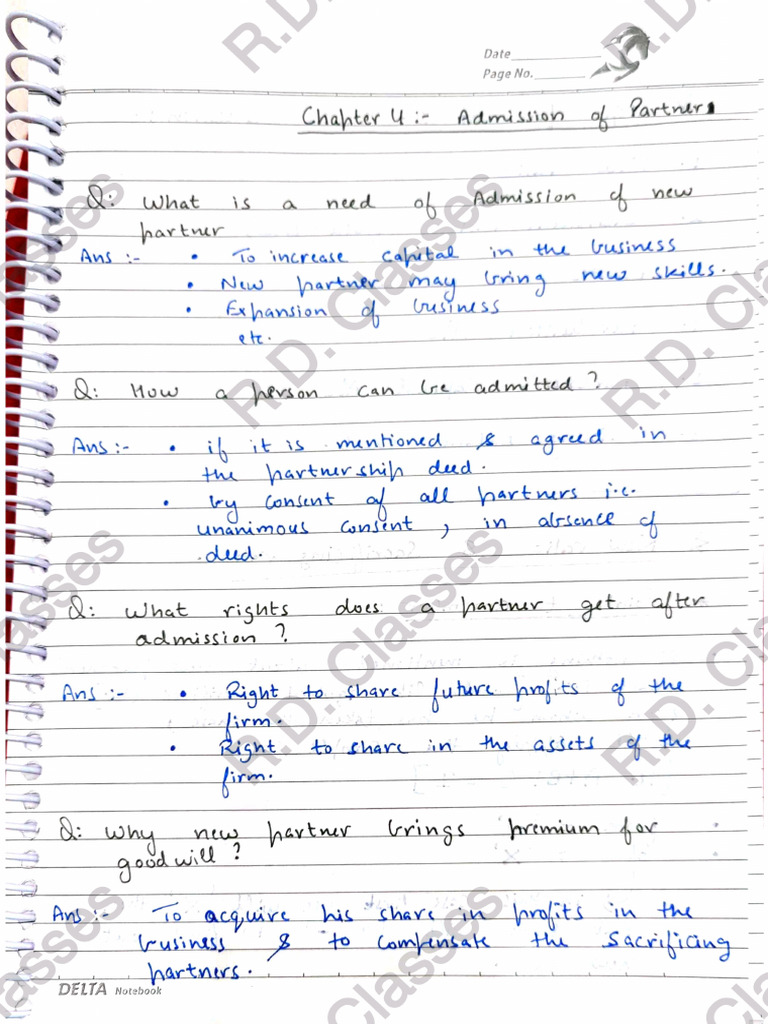 Date
Page No.
Chapter 4 :- Admission of Partner
Q: What is a need of Admission of new
partner
Ans :- • To increase capital in the business
• New partner may bring new skills.
• Expansion of business
etc.
Q: How a person can be admitted?
Ans :- • if it is mentioned & agreed in
the partnership deed.
• by consent of all partners i.e.
unanimous consent, in absence of
deed.
Q: What rights does a partner get after
admission?
Ans :- • Right to share future profits of the
firm.
• Right to share in the assets of the
firm.
Q: Why new partner brings premium for
goodwill?
Ans :- To acquire his share in profits in the
business & to compensate the sacrificing
partners.
DELTA Notebook
R.D. Classes